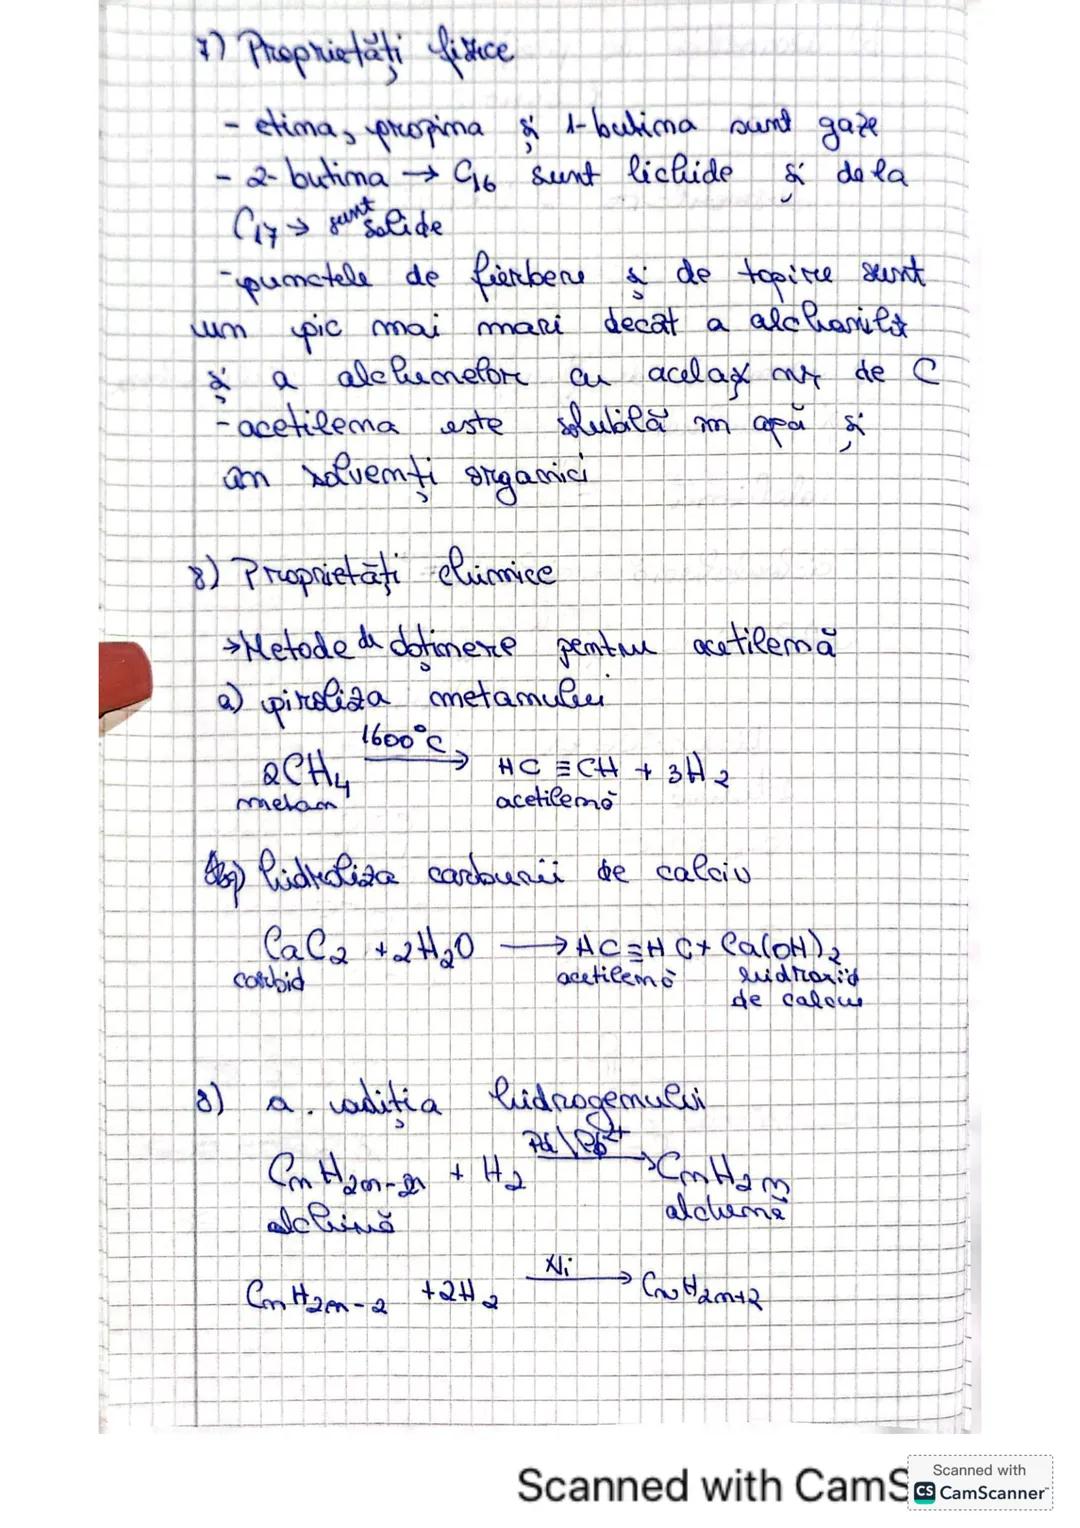 7) Proprietăți fizice
- etina, propina și 1-butina sunt gaze
- 2-butina → C16 sunt lichide și de la
C17 → sunt solide
- punctele de fierbere și de topire sunt
um pic mai mari decât a alchanilor
și a alchenelor cu același nr de C
- acetilena este solubilă în apă și
an solvenți organici
8) Proprietăți chimice
→ Metode de obținere pentru acetilenă
a) piroliza metanului
2CH4 1600°C → HC ≡ CH + 3H2
metan acetilenă
b) hidroliza carburii de calciu
CaC2 + 2H2O → HC ≡ HC + Ca(OH)2
carbid acetilenă hidroxid
de calciu
8) a. adiția hidrogenului
CnH2n-2 + H2 Pd\Pb2+ → CnH2n
alchină alchenă
CnH2n-2 + 2H2 Ni → CnH2n+2
Scanned with CamS
Scanned with
CS CamScanner